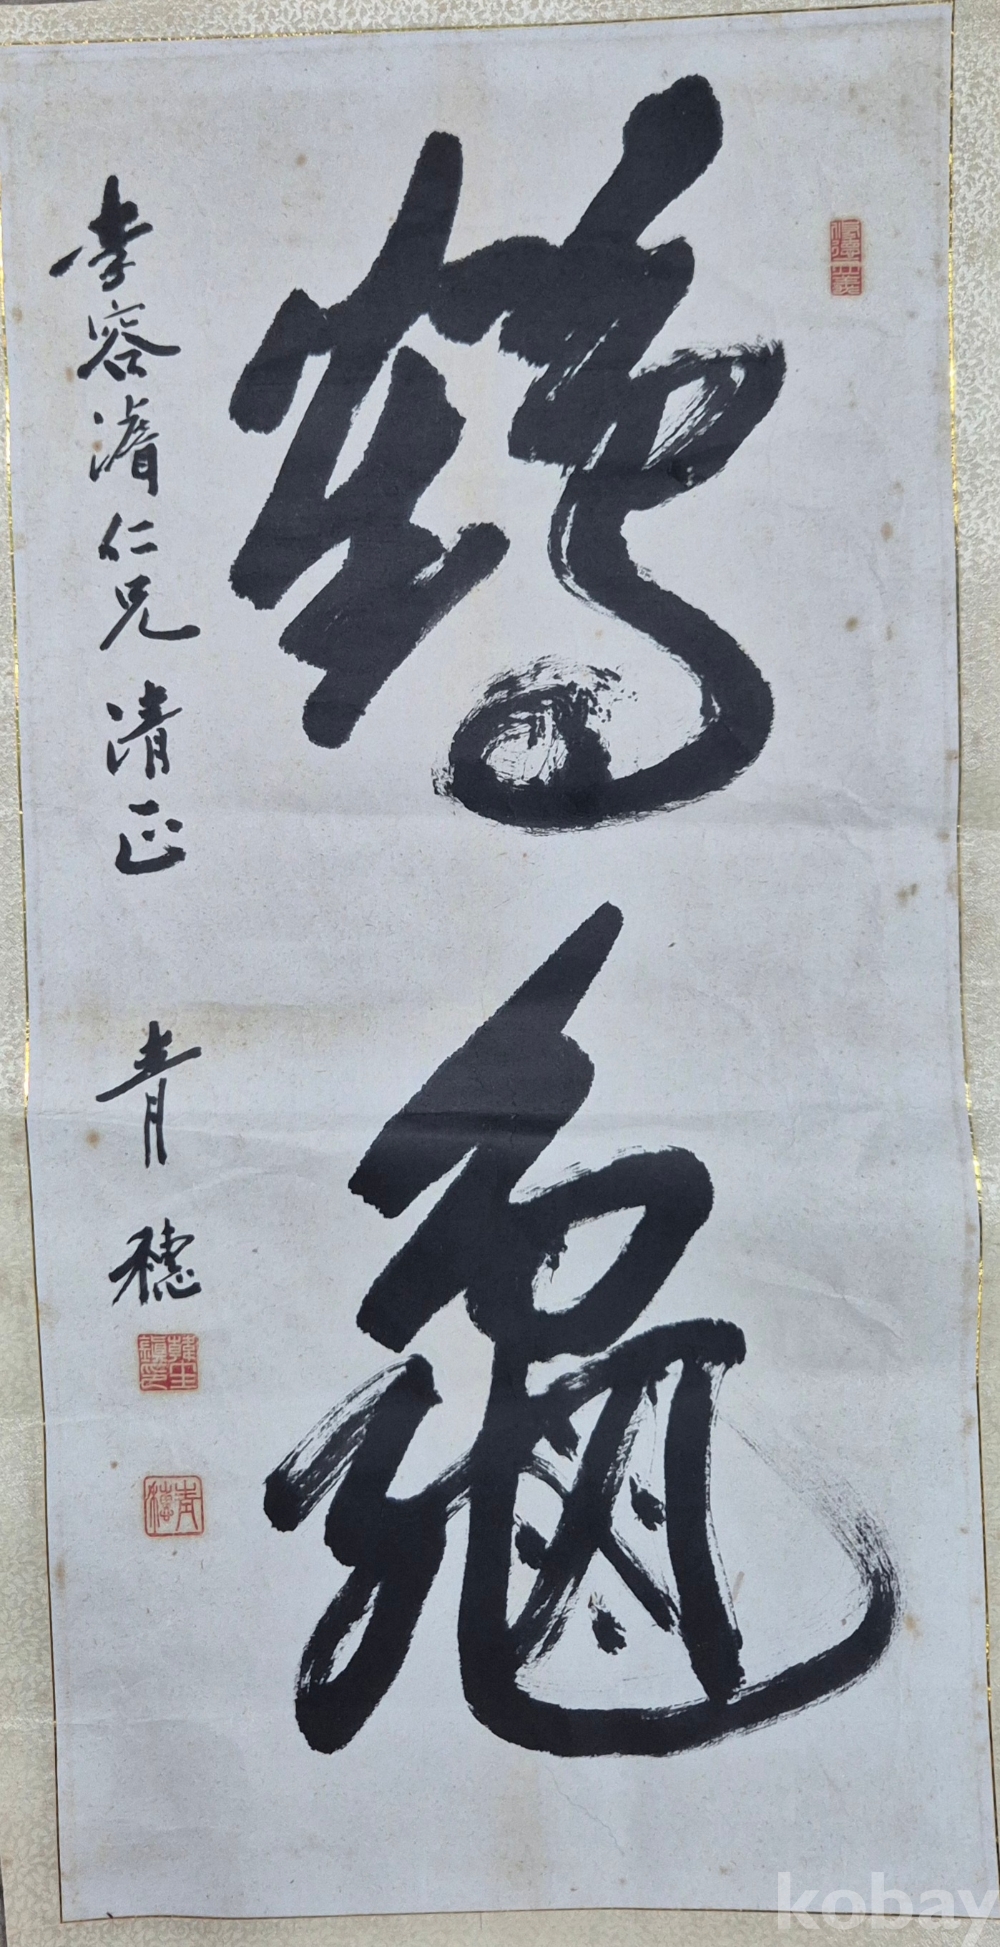 鶴龜
李容濬仁兄清正
青穗
青穗
kobay